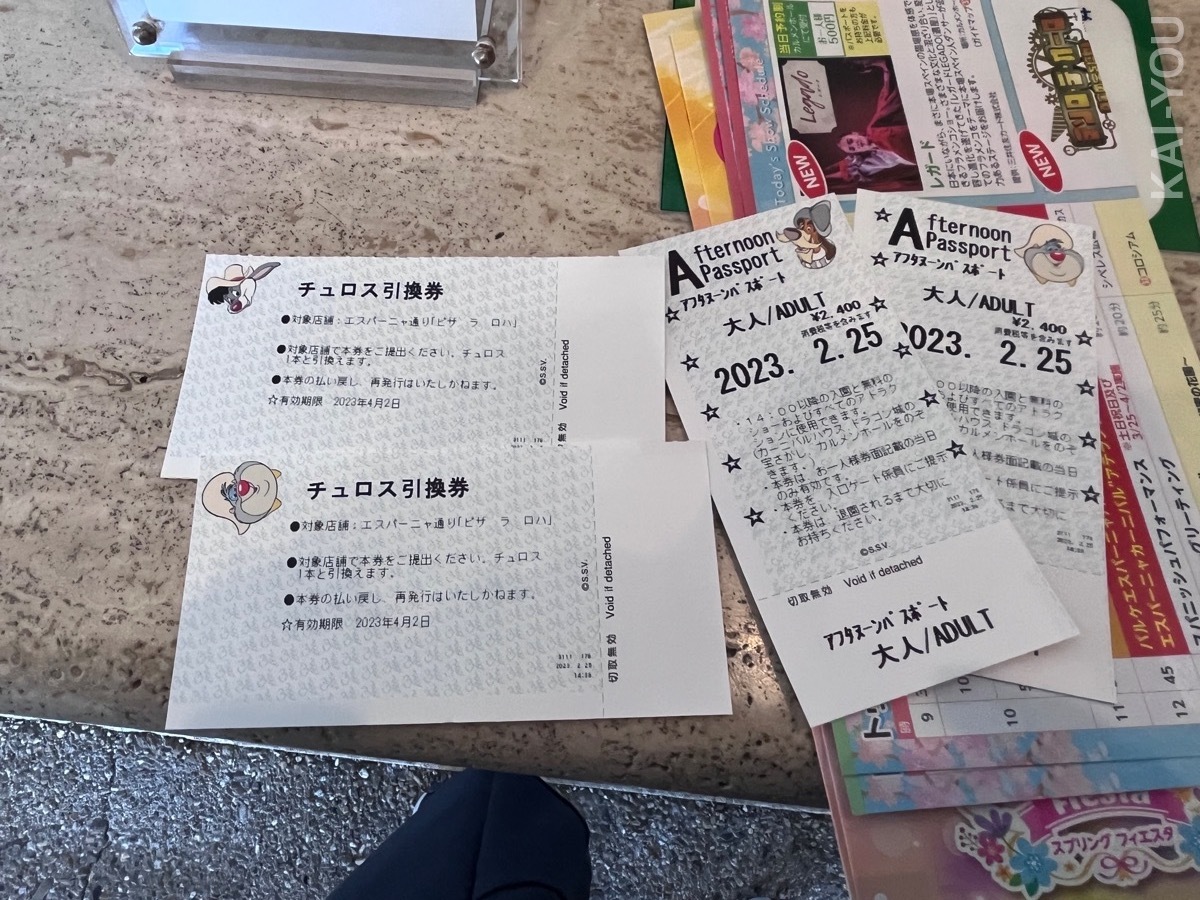 チュロス引換券
●対象店舗：エスパーニャ通り「ピザ ラ ロハ」
●対象店舗で本券をご提出ください。チュロス
1本と引換えます。
●本券の払い戻し、再発行はいたしかねます。
☆有効期限 2023年4月2日
©S.S.V.
Void if detached
チュロス引換券
●対象店舗：エスパーニャ通り「ピザ ラ ロハ」
●対象店舗で本券をご提出ください。チュロス
1本と引換えます。
●本券の払い戻し、再発行はいたしかねます。
☆有効期限 2023年4月2日
©S.S.V.
切取無効 Void if detached
Afternoon
Passport
アフタヌーンパスポート
大人/ADULT
¥2,400
消費税等を含みます
2023. 2.25
・14:00以降の入園と無料の
ショーおよびすべてのアトラク
ションに使用できます。
(カーニバルハウス、ドラゴン城の
宝さがし、カルメンホールをのぞ
きます。
・本券は、お一人様券面記載の当日
のみ有効です。
・本券を、入口ゲート係員にご提示
ください。
・本券は、退園されるまで大切に
お持ちください。
©S.S.V.
切取無効 Void if detached
アフタヌーンパスポート
大人/ADULT
Afternoon
Passport
アフタヌーンパスポート
大人/ADULT
¥2,400
消費税等を含みます
2023. 2.25
以降の入園と無料の
よびすべてのアトラク
使用できます。
ハウス、ドラゴン城の
カルメンホールをのぞ
人様券面記載の当日
ート係員にご提示
まで大切に
Today's Show Schedule
当日予約制
カルメンホール
にて受付
お一人様
500円
Legado
NEW
レガード
提供:三井住友カード株式会社
NEW
コロシアム
約20分
約25分
※土日祝日及び
3/25～4/2開催
バルケエスパーニャ
エスパーニャカーニバル"アデランテ
スパニッシュパフォーマンス
グリーティング
9
10
11
12
45
Fiesta
スプリング フィエスタ
KAI-YOU